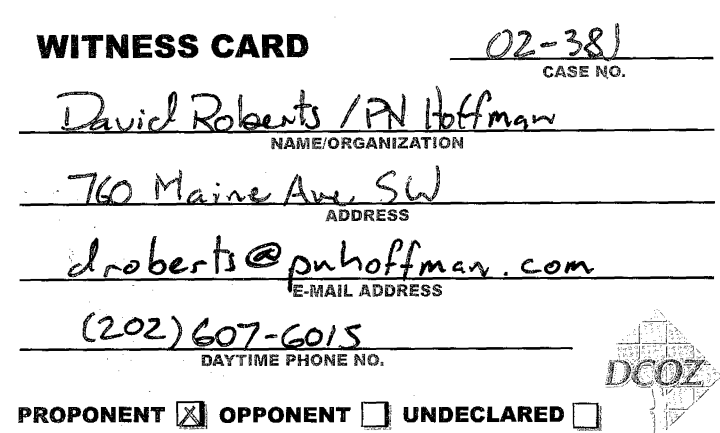 WITNESS CARD
02-381
CASE NO.
David Roberts / PN Hoffman
NAME/ORGANIZATION
760 Maine Ave SW
ADDRESS
droberts@pnhoffman.com
E-MAIL ADDRESS
(202) 607-6015
DAYTIME PHONE NO.
DCOZ
PROPONENT ☒ OPPONENT ☐ UNDECLARED ☐